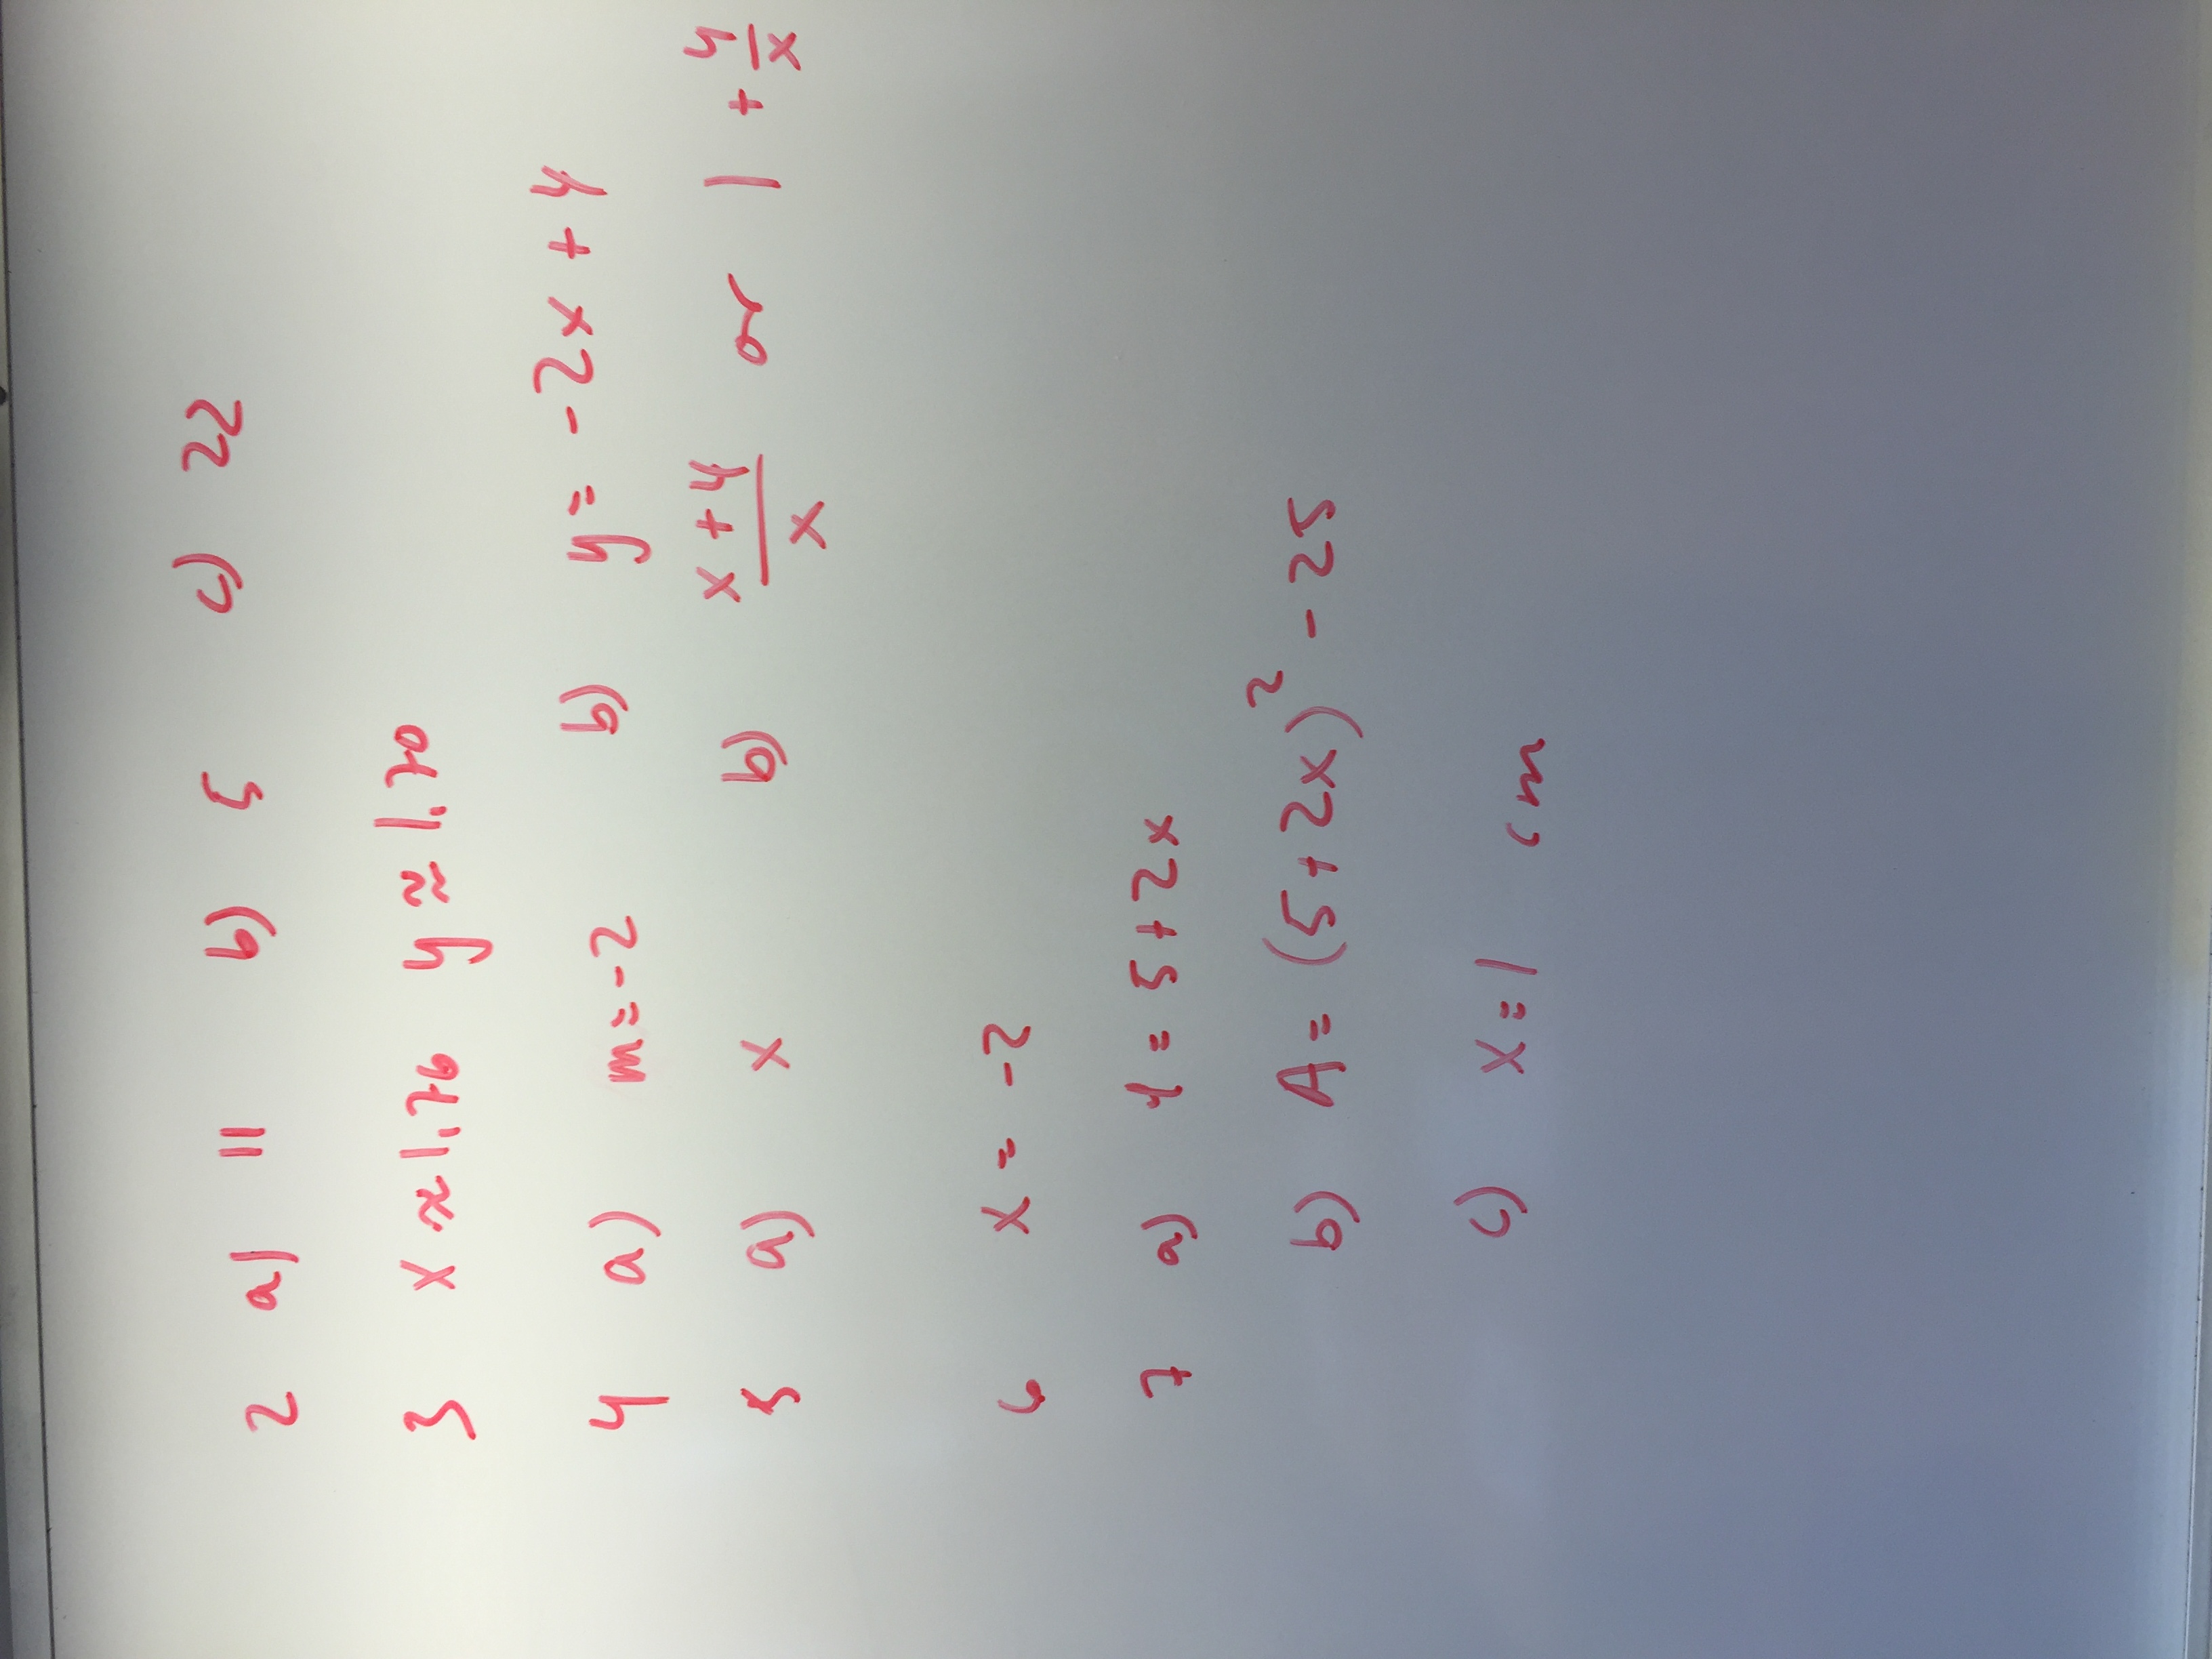 2 a) 11 b) 5 c) 22
3 x ≈ 1.76 y ≈ 1.70
4 a) m = -2 b) y = -2x + 4
5 a) x b) (x + 4)/x or 1 + 4/x
6 x = -2
7 a) y = 5 + 2x
b) A = (5 + 2x)² - 25
c) x = 1 cm